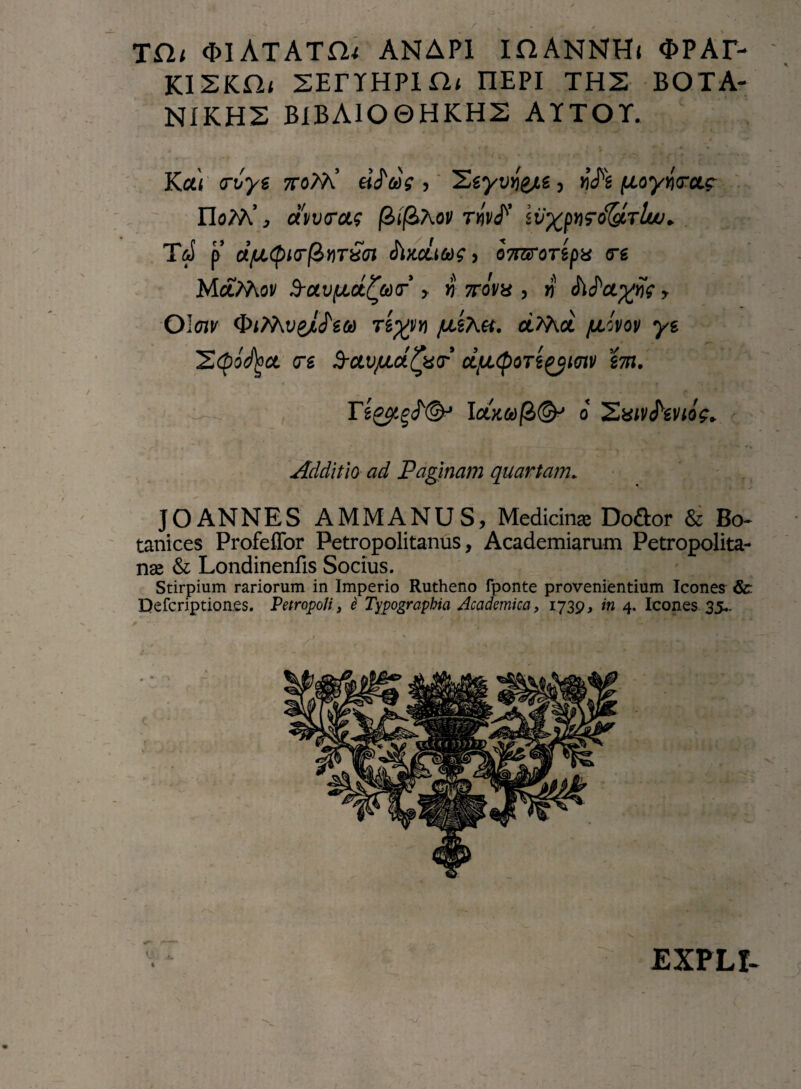 ΤΩι ΦΙΛΤΑΤΩι ΑΝΔΡΙ ΙΩΑΝΝΗι ΦΡΑΓ-
ΚΙΣΚΩι ΣΕΓΥΗΡΙΩι ΠΕΡΙ ΤΗΣ ΒΟΤΑ-
ΝΙΚΗΣ ΒΙΒΛΙΟΘΗΚΗΣ ΑΥΤΟΥ.
Καὶ σύγε πολλ' εἰδὼς, Σεγυήριε, ἠδὲ μογήσας
Πολλ', ἄνυσας βίβλον τήνδ' ἐυχρηστοτάτην.
Τῷ ῥ' ἀμφισβητȣσι δικαίως, ὁπποτέρȣ σε
Μᾶλλον θαυμάζωσ', ἢ πόνȣ, ἢ διδαχῆς,
Οἷσιν Φιλλυρίδεω τέχνη μέλει. ἀλλὰ μόνον γε
Σφόδρα σε θαυμάζȣσ' ἀμφοτέροισιν ἔπι.
Γέραρδος Ιάκωβος ὁ Σȣινδενιός.
Additio ad Paginam quartam.
JOANNES AMMANUS, Medicinæ Doctor & Bo-
tanices Professor Petropolitanus, Academiarum Petropolita-
næ & Londinensis Socius.
Stirpium rariorum in Imperio Rutheno sponte provenientium Icones &
Descriptiones. Petropoli, è Typographia Academica, 1739, in 4. Icones 35.
EXPLI-